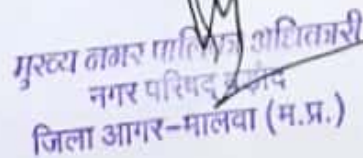 मुख्य नगर पालिका अधिकारी
नगर परिषद बड़ौद
जिला आगर-मालवा (म.प्र.)